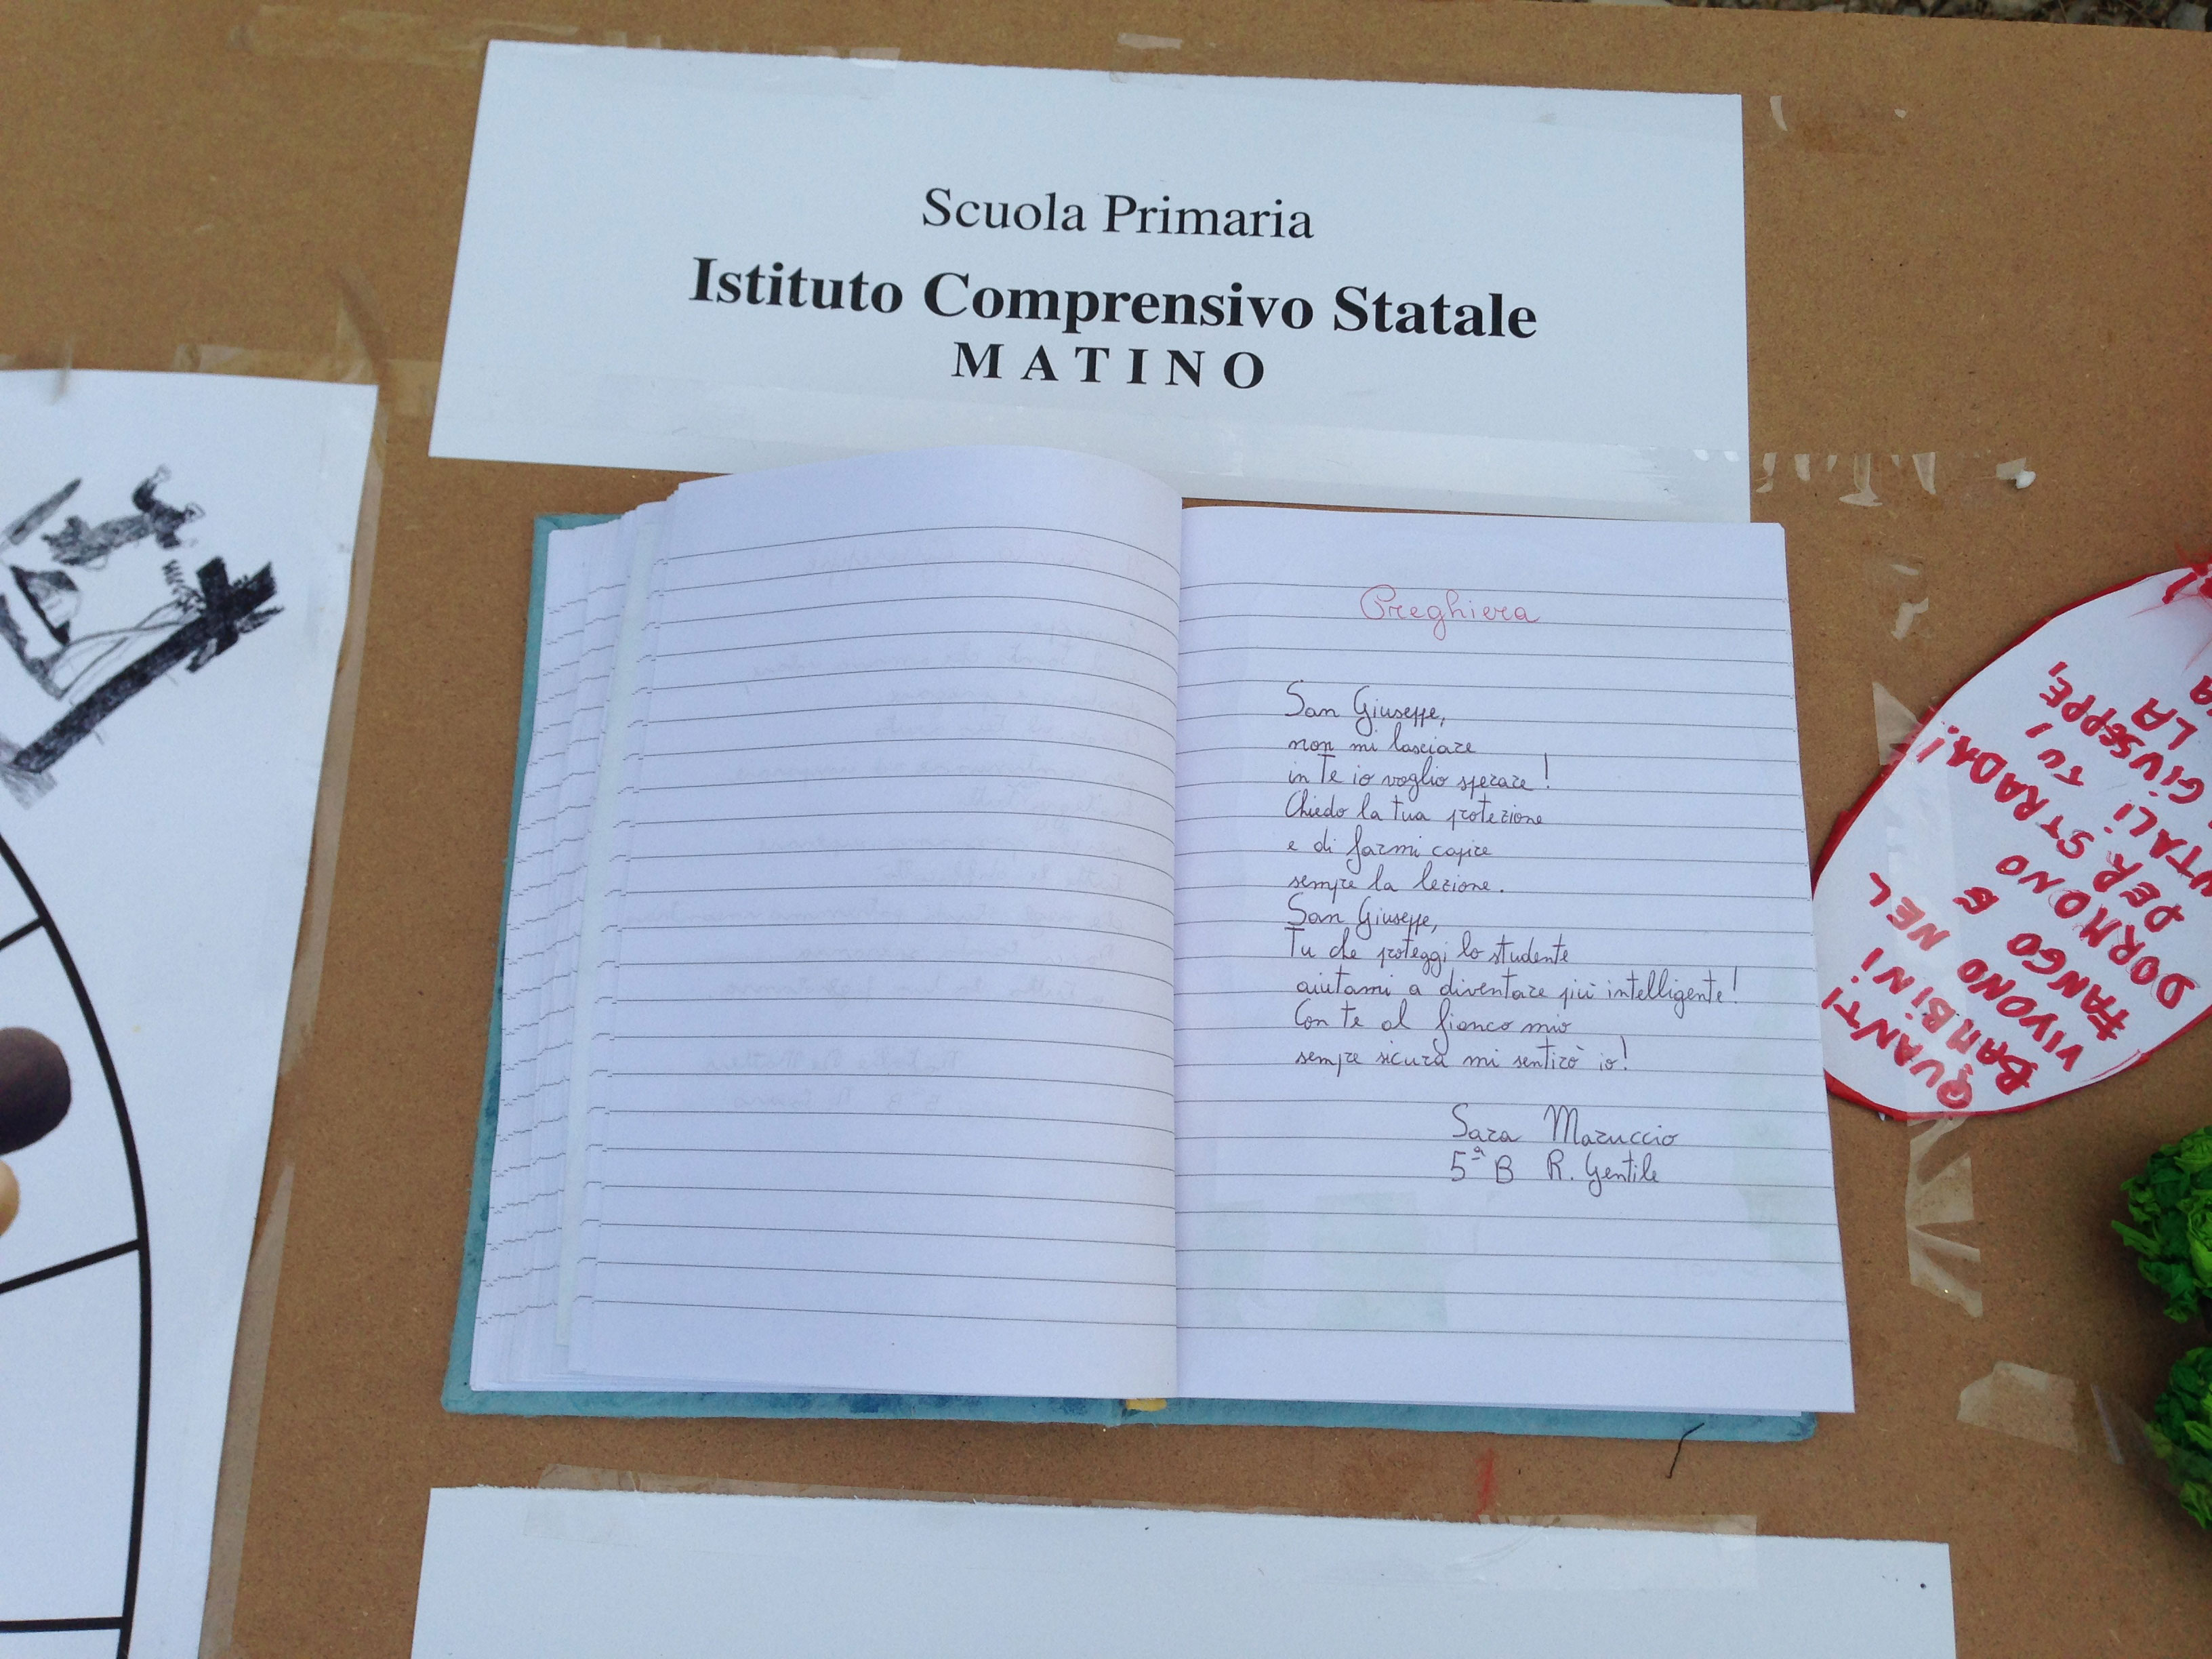 Scuola Primaria
Istituto Comprensivo Statale
MATINO
Preghiera
San Giuseppe,
non mi lasciare
in te io voglio sperare!
Chiedo la tua protezione
e di farmi capire
sempre la lezione.
San Giuseppe,
Tu che proteggi lo studente
aiutami a diventare più intelligente!
Con te al fianco mio
sempre sicura mi sentirò io!
Sara Maruccio
5ª B R. Gentile
QUANTI
BAMBINI
VIVONO NEL
FANGO E
DORMONO
PER STRADA!
TU
GIUSEPPE,
LA